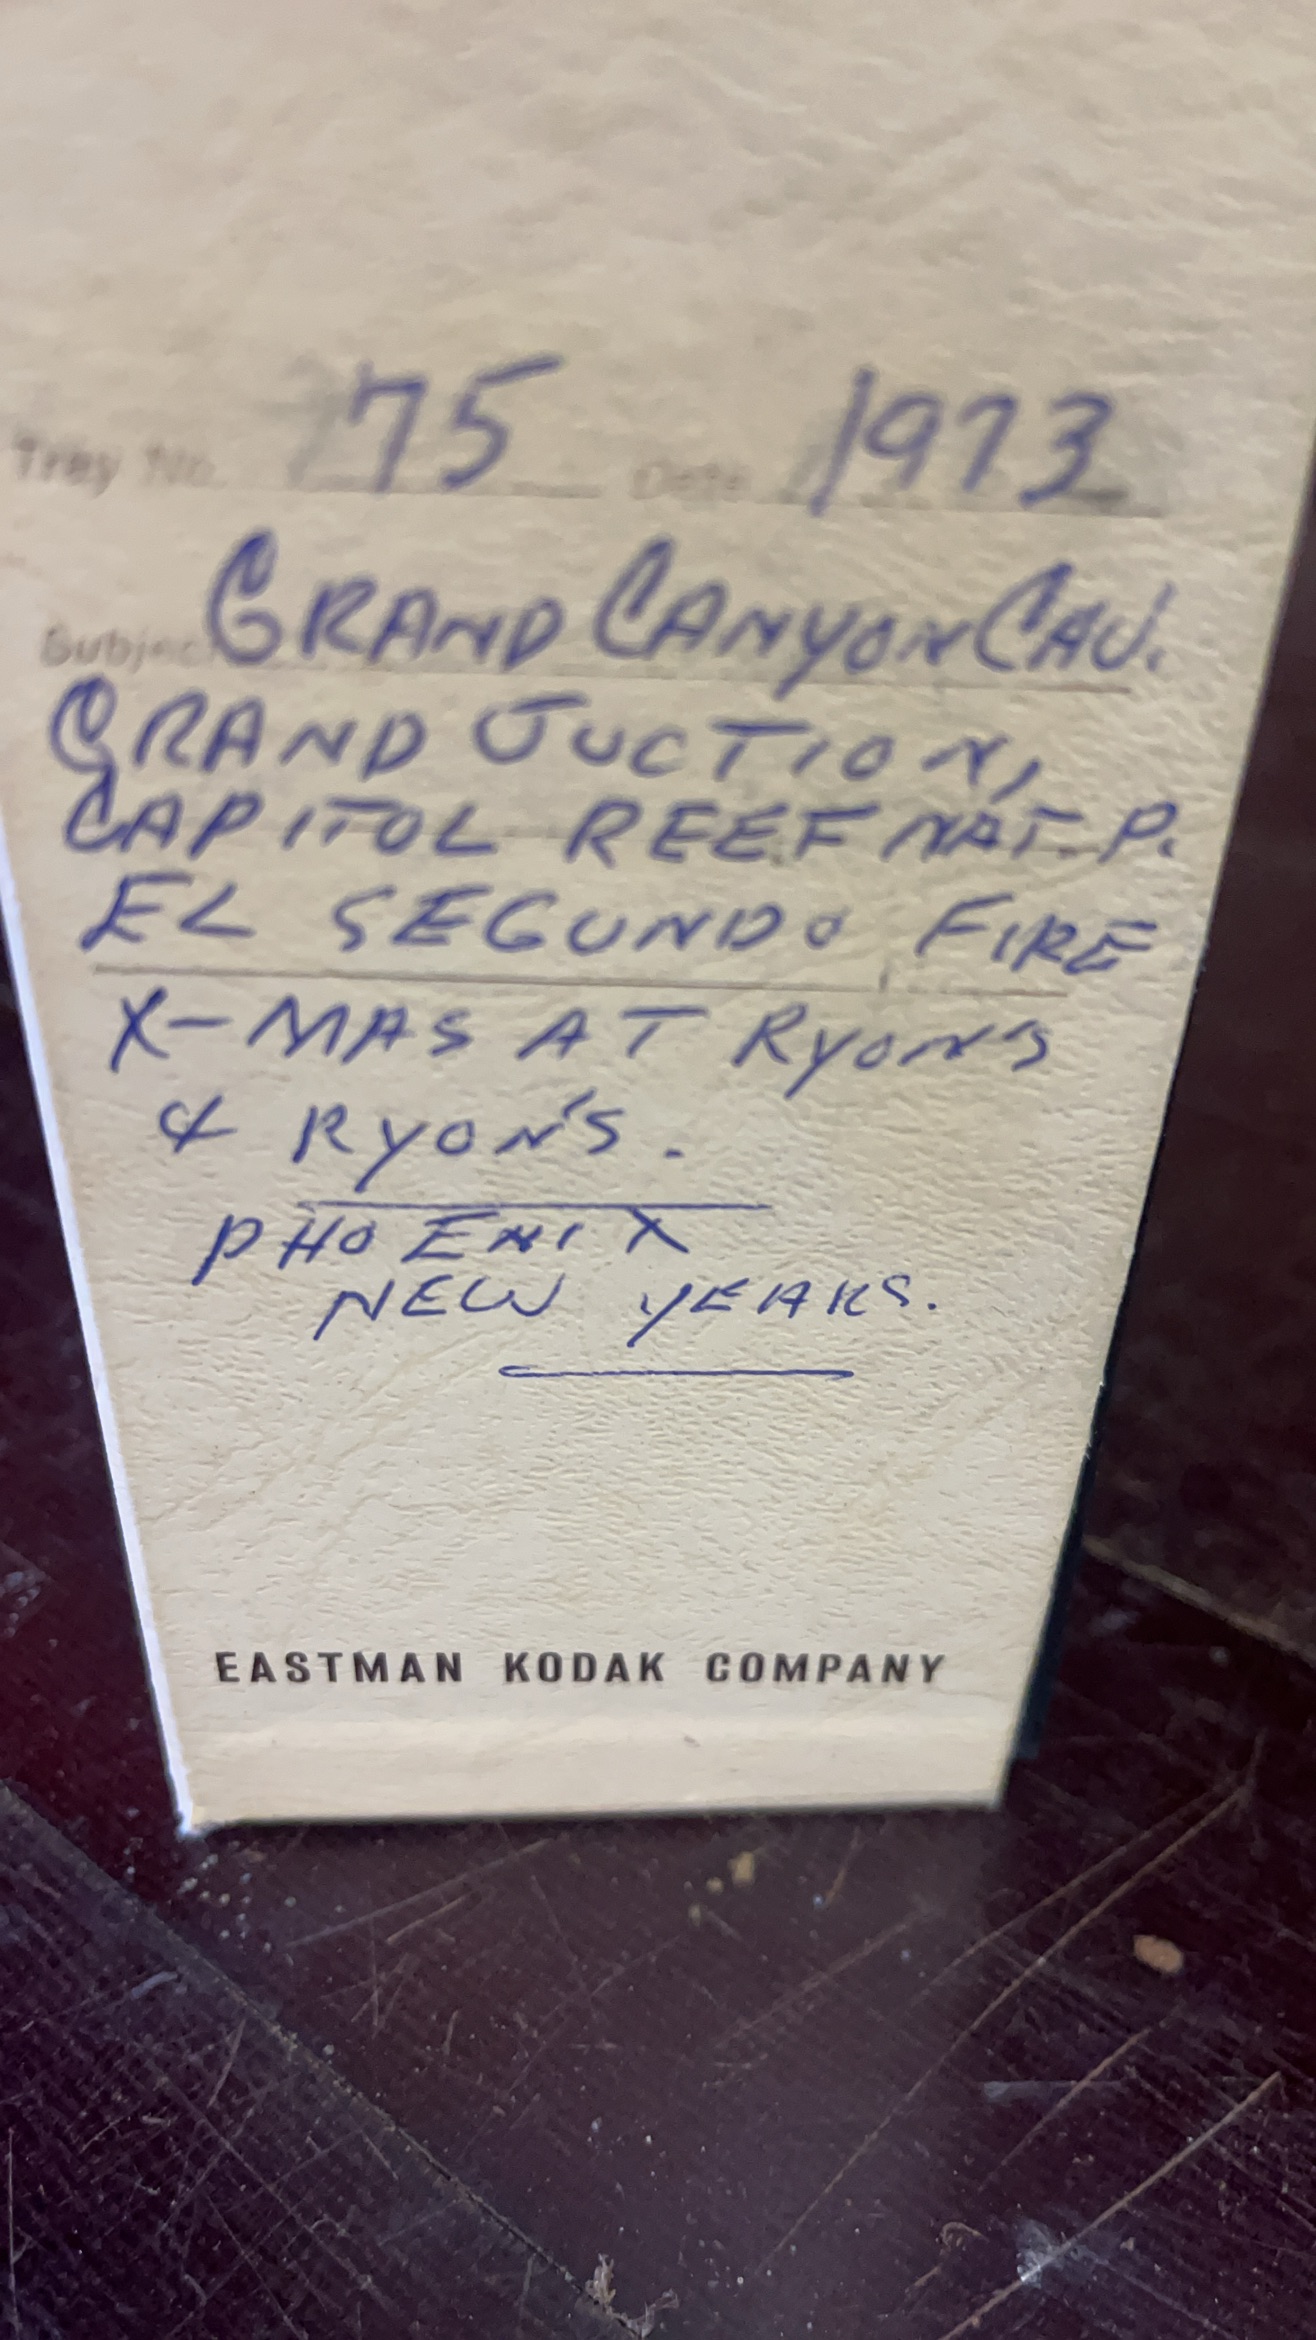 Tray No. 75 Date 1973
Subject GRAND CANYON CAV.
GRAND JUCTION,
CAPITOL REEF NAT. P.
EL SEGUNDO FIRE
X-MAS AT RYON'S
& RYON'S.
PHOENIX
NEW YEARS.
EASTMAN KODAK COMPANY